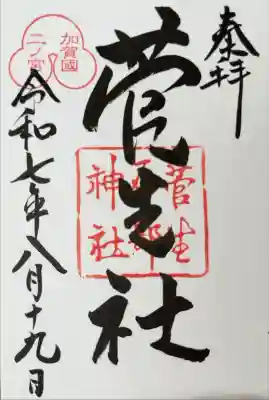 奉拝
加賀國
二ノ宮
菅生社
菅生
石部
神社
令和七年八月十九日